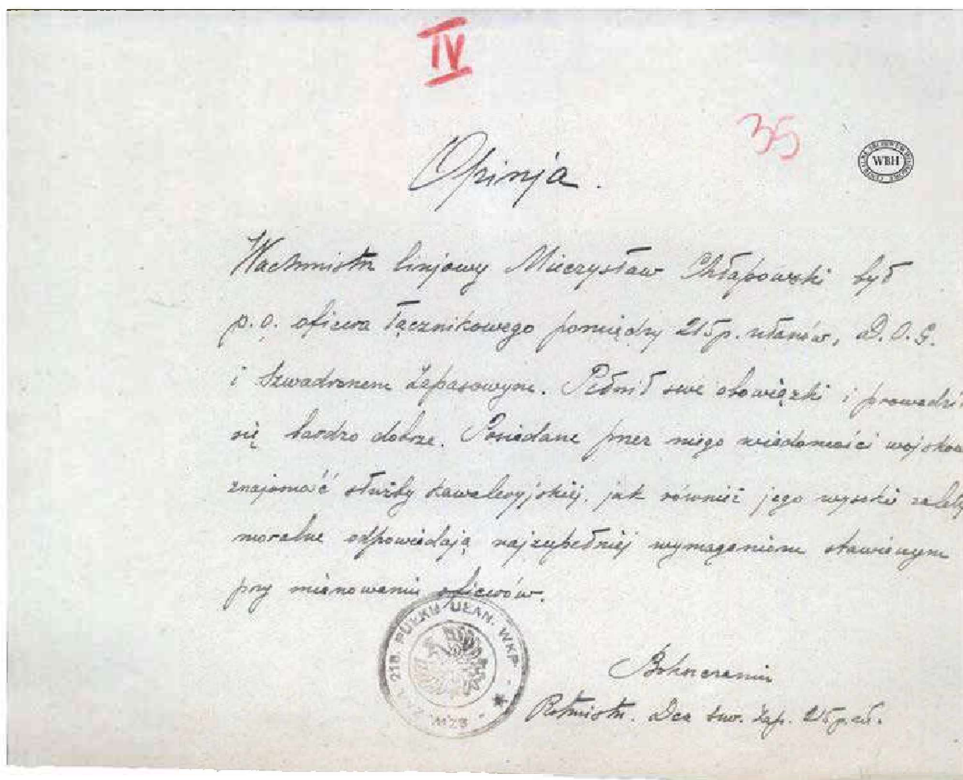 IV
35
WBH
Opinja.
Wachmistrz linjowy Mieczysław Chłapowski był
p.o. oficera łącznikowego pomiędzy 215 p. ułanów, D.O.G.
i Szwadronem Zapasowym. Pełnił swe obowiązki i prowadził
się bardzo dobrze. Posiadane przez niego wiadomości wojskow
znajomość służby kawaleryjskiej, jak również jego wysokie zalety
moralne odpowiadają najzupełniej wymaganiom stawianym
przy mianowaniu oficerów.
215. PUŁKU UŁAN. WKP.
Rotmistrz. Dca szw. zap. 215 p. uł.